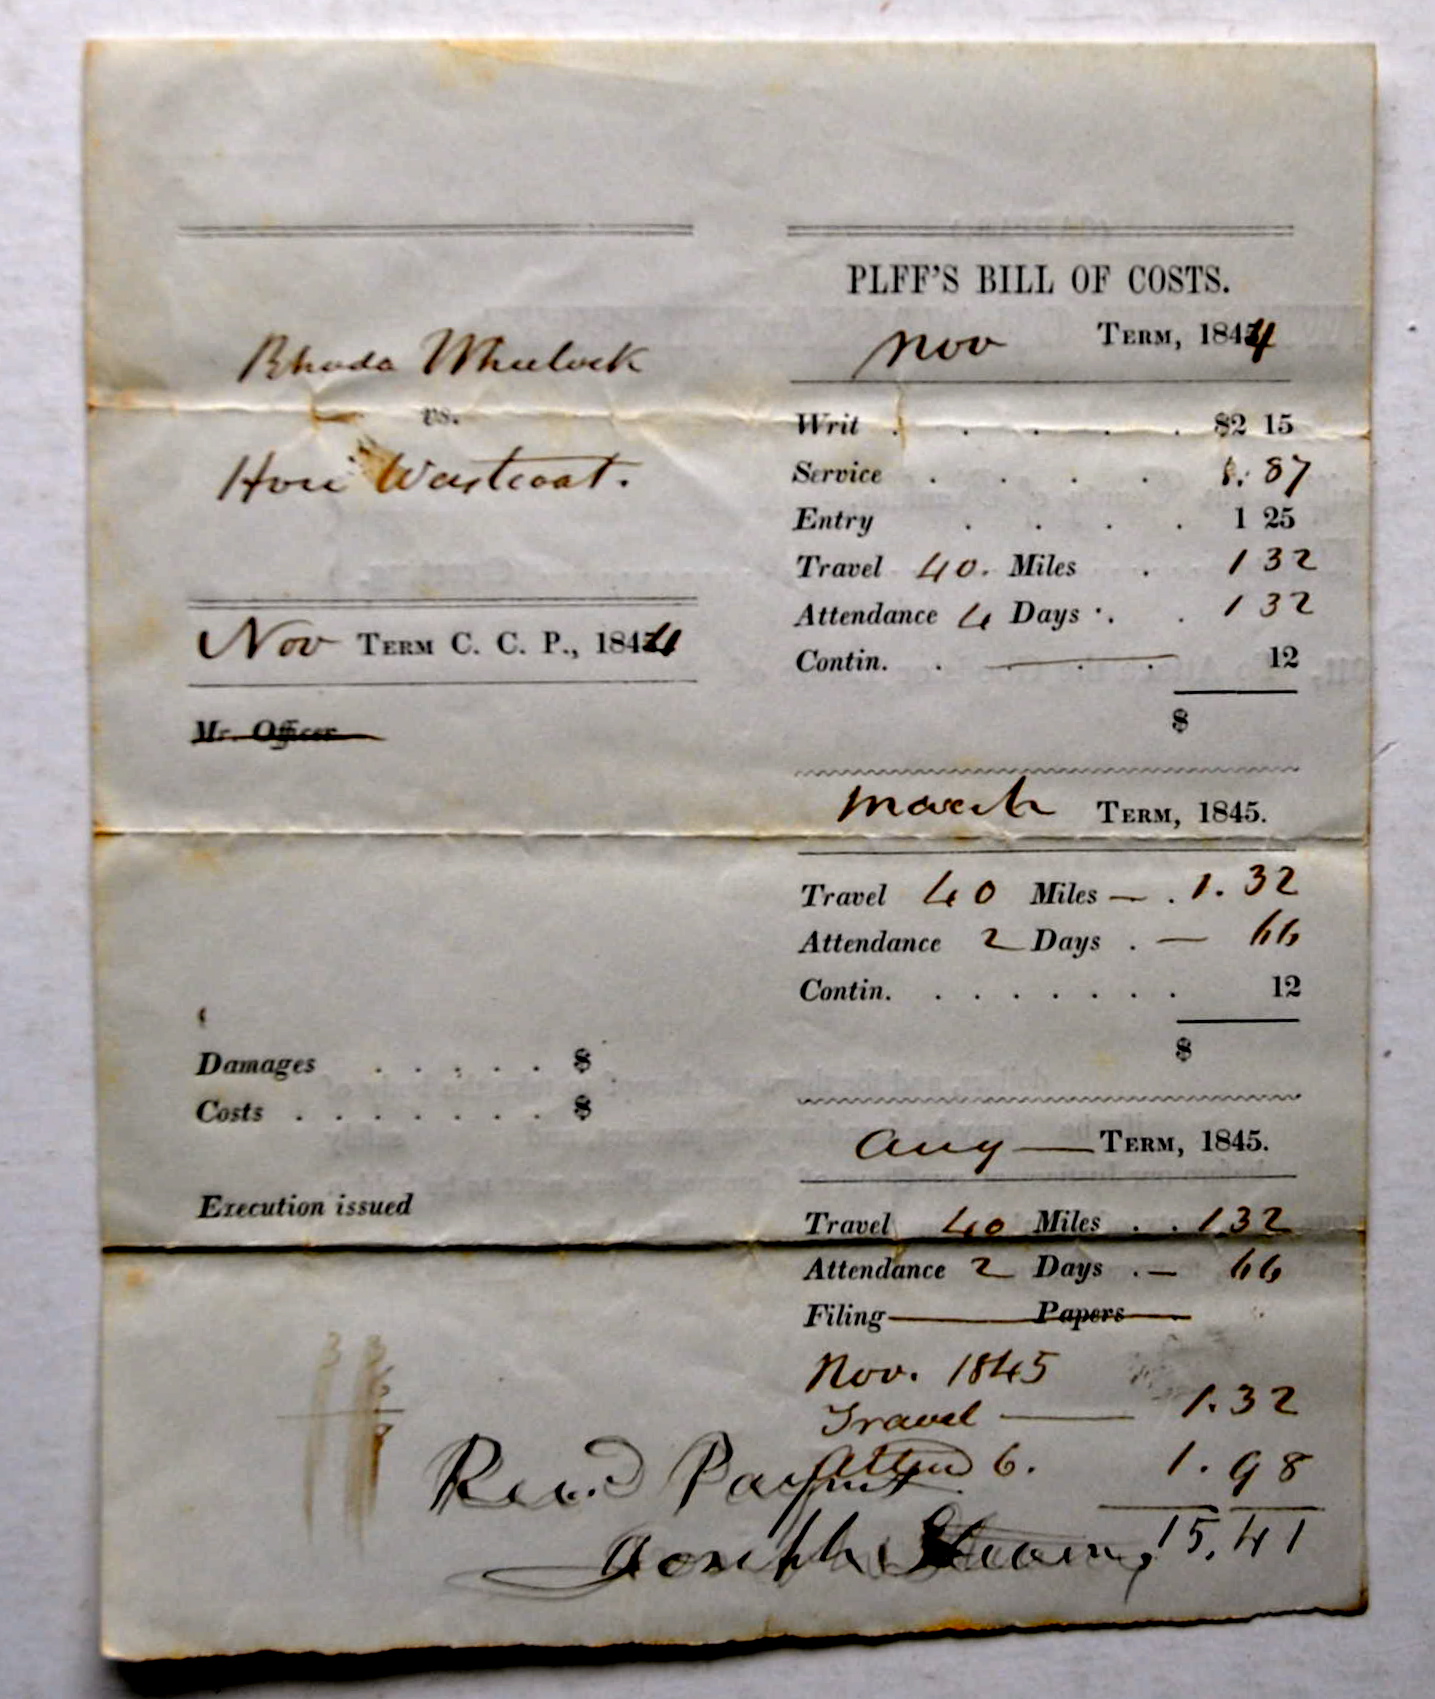 Rhoda Wheelock
vs.
Hori Wastcoat.
Nov TERM C. C. P., 1844
Mr. Officer
Damages . . . . . $
Costs . . . . . . . $
Execution issued
PLFF'S BILL OF COSTS.
Nov TERM, 1844
Writ . . . . . $2 15
Service . . . . 1. 87
Entry . . . . 1 25
Travel 40. Miles . 1 32
Attendance 4 Days . . 1 32
Contin. . . . 12
$
March TERM, 1845.
Travel 40 Miles — . 1. 32
Attendance 2 Days . — 66
Contin. . . . . . . . 12
$
Aug — TERM, 1845.
Travel 40 Miles . . 1 32
Attendance 2 Days . — 66
Filing — Papers —
Nov. 1845
Travel — 1. 32
Atten 6. 1. 98
15. 41
Rec.d Paymt
Joseph